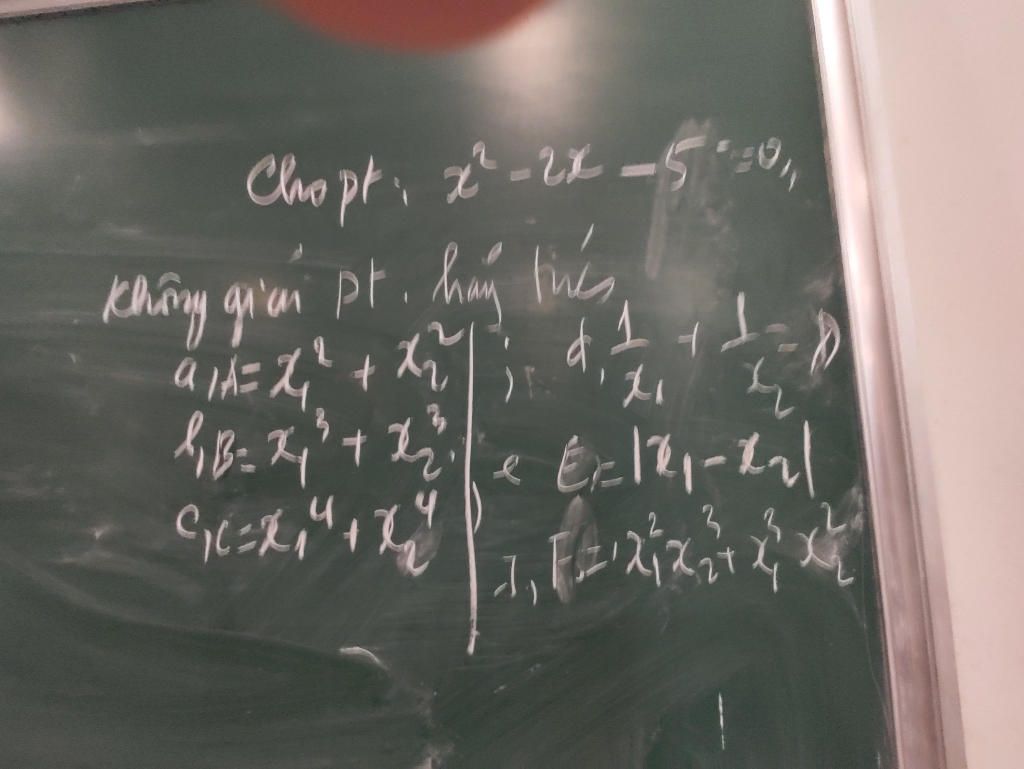 Cho pt: x² - 2x - 5 = 0
Không giải pt. hãy
a, A = x₁² + x₂²
b, B = x₁³ + x₂³
c, C = x₁⁴ + x₂⁴
d, 1/x₁ + 1/x₂ = D
e E = |x₁ - x₂|
F = x₁²x₂³ + x₁³x₂²